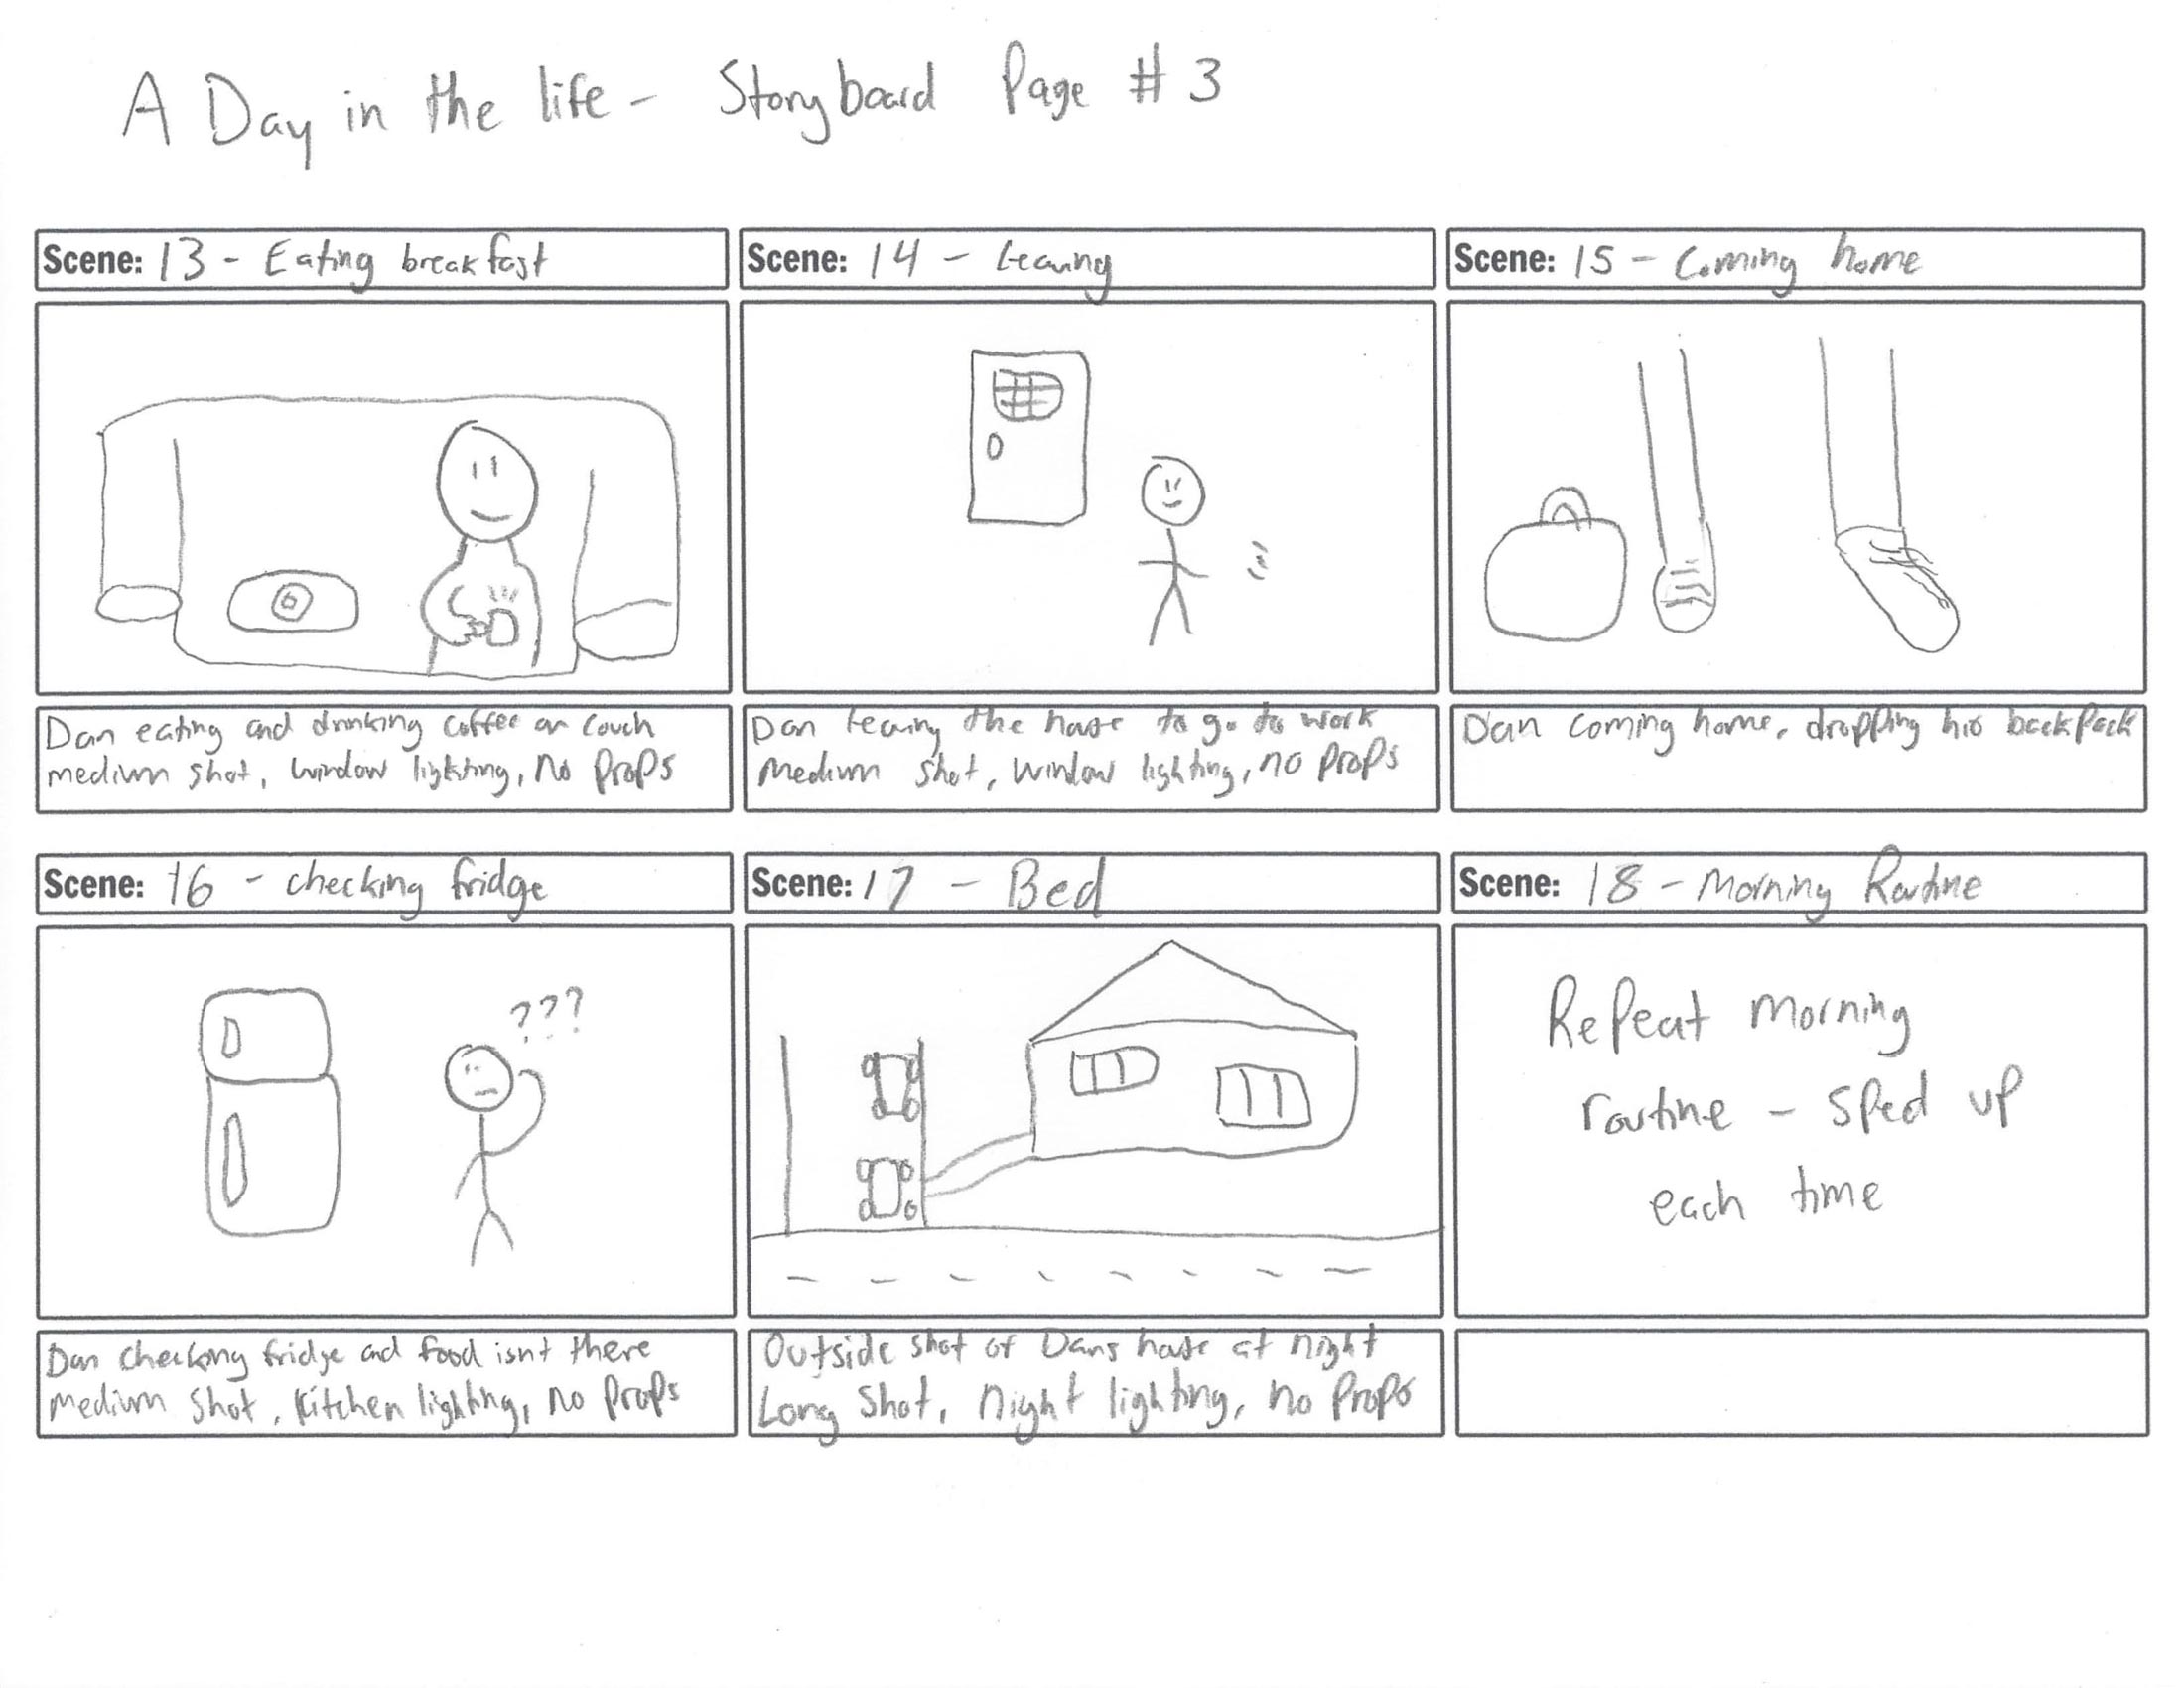 A Day in the life - Storyboard Page # 3
Scene: 13 - Eating breakfast
Dan eating and drinking coffee on couch
medium shot, window lighting, no props
Scene: 14 - Leaving
Dan leaving the house to go to work
Medium shot, window lighting, no props
Scene: 15 - Coming home
Dan coming home, dropping his backpack
Scene: 16 - checking fridge
???
Dan checking fridge and food isnt there
medium shot, kitchen lighting, no props
Scene: 17 - Bed
Outside shot of Dans house at night
Long shot, night lighting, no props
Scene: 18 - Morning Routine
Repeat morning
routine - sped up
each time